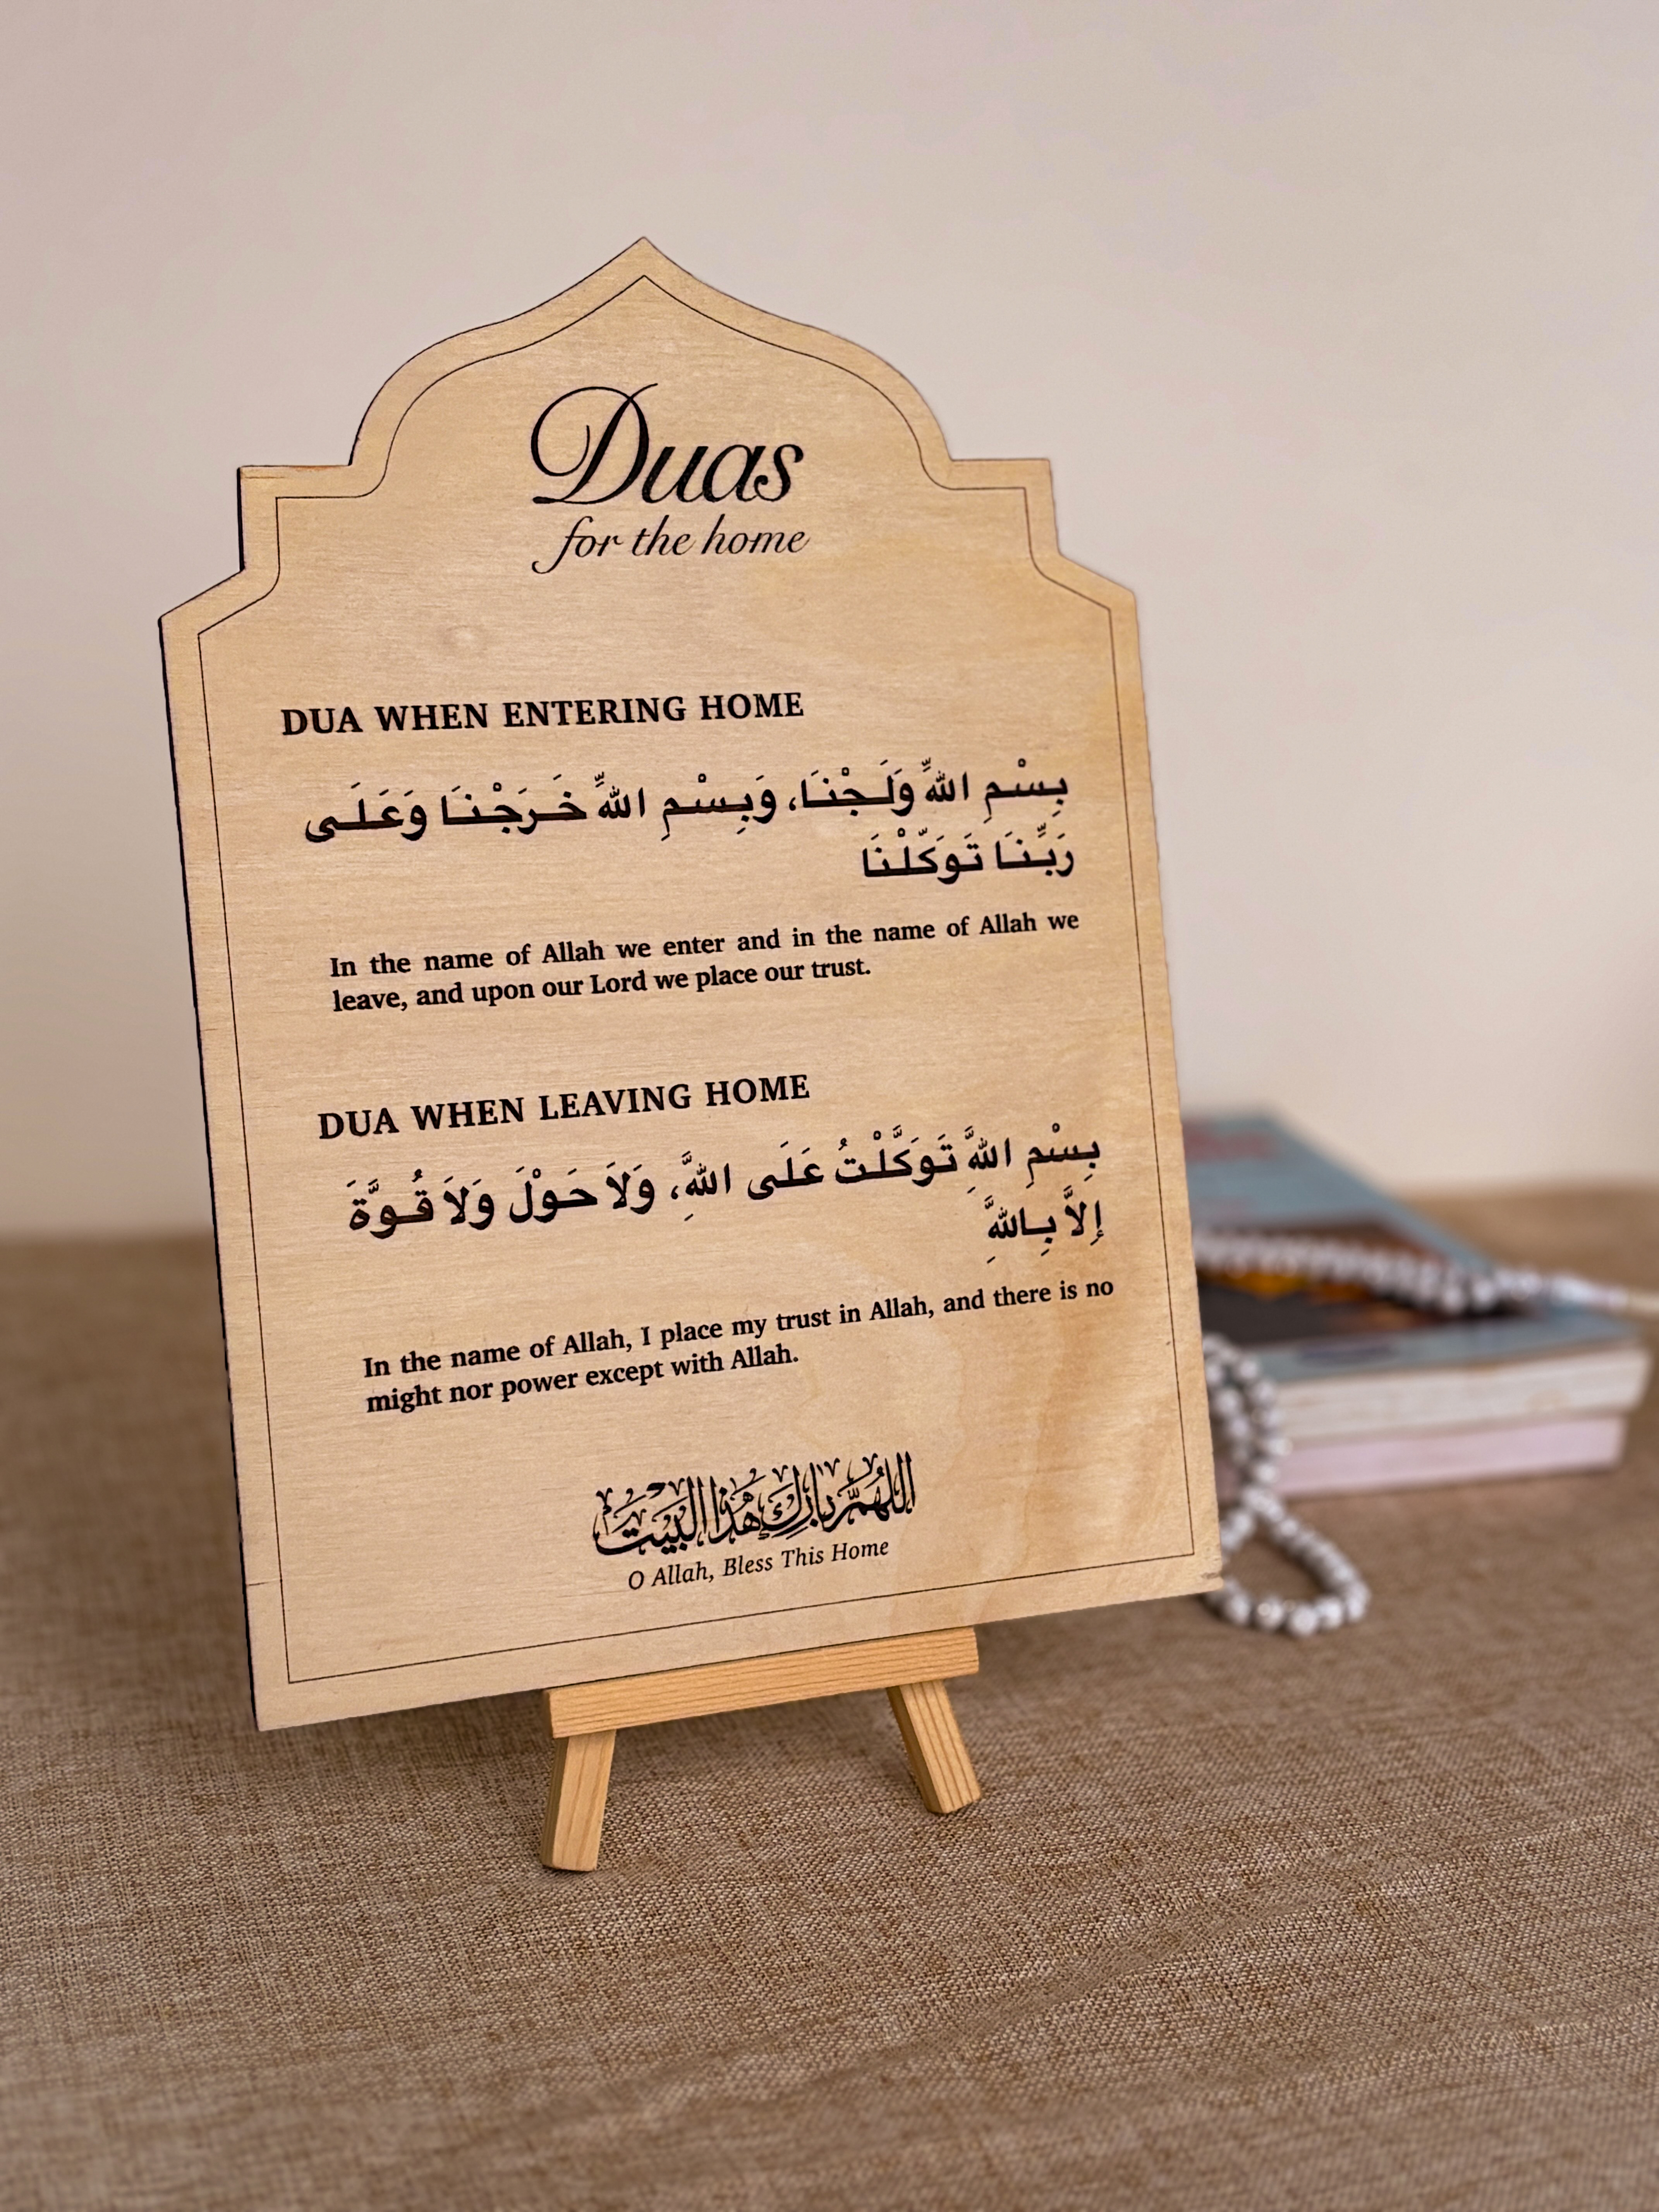 Duas
for the home
DUA WHEN ENTERING HOME
بِسْمِ اللهِّ وَلَجْنَا، وَبِسْمِ اللهِّ خَرَجْنَا وَعَلَى
رَبِّنَا تَوَكَّلْنَا
In the name of Allah we enter and in the name of Allah we
leave, and upon our Lord we place our trust.
DUA WHEN LEAVING HOME
بِسْمِ اللهَِّ تَوَكَّلْتُ عَلَى اللهَِّ، وَلاَ حَوْلَ وَلاَ قُوَّةَ
إِلاَّ بِاللهَِّ
In the name of Allah, I place my trust in Allah, and there is no
might nor power except with Allah.
اللهم بارك هذا البيت
O Allah, Bless This Home